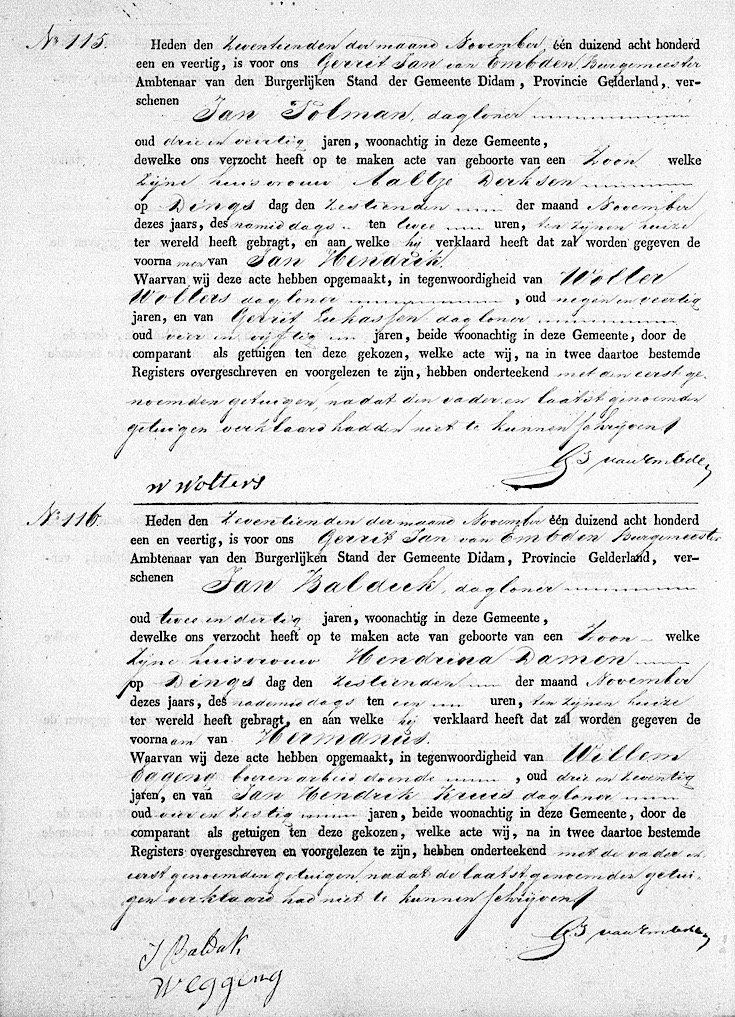 No 115. Heden den Zeventienden der maand November, één duizend acht honderd
een en veertig, is voor ons Gerrit Jan van Embden, Burgemeester
Ambtenaar van den Burgerlijken Stand der Gemeente Didam, Provincie Gelderland, ver-
schenen
Jan Polman, dagloner
oud drie en veertig jaren, woonachtig in deze Gemeente,
dewelke ons verzocht heeft op te maken acte van geboorte van een Zoon welke
Zijne huisvrouw Aaltje Derksen
op Dings dag den Zestienden der maand November
dezes jaars, des namiddags ten twee uren, ten zijnen huize
ter wereld heeft gebragt, en aan welke hij verklaard heeft dat zal worden gegeven de
voorna men van Jan Hendrik.
Waarvan wij deze acte hebben opgemaakt, in tegenwoordigheid van Wolter
Wolters dagloner , oud negen en veertig
jaren, en van Gerrit Lukassen dagloner
oud vier en vijftig jaren, beide woonachtig in deze Gemeente, door de
comparant als getuigen ten deze gekozen, welke acte wij, na in twee daartoe bestemde
Registers overgeschreven en voorgelezen te zijn, hebben onderteekend met den eerst ge-
noemden getuigen, nadat den vader en laatst genoemden
getuigen verklaard hadden niet te kunnen schrijven
GJ van Embden
W Wolters
No 116. Heden den Zeventienden der maand November één duizend acht honderd
een en veertig, is voor ons Gerrit Jan van Embden Burgemeester
Ambtenaar van den Burgerlijken Stand der Gemeente Didam, Provincie Gelderland, ver-
schenen
Jan Balduk, dagloner
oud twee en dertig jaren, woonachtig in deze Gemeente,
dewelke ons verzocht heeft op te maken acte van geboorte van een Zoon welke
Zijne huisvrouw Hendrina Damen
op Dings dag den Zestienden der maand November
dezes jaars, des nademiddags ten een uren, ten zijnen huize
ter wereld heeft gebragt, en aan welke hij verklaard heeft dat zal worden gegeven de
voorna am van Hermanus.
Waarvan wij deze acte hebben opgemaakt, in tegenwoordigheid van Willem
Eggeng boeren arbeid doende , oud drie en zeventig
jaren, en van Jan Hendrik Kruis dagloner
oud vier en zestig jaren, beide woonachtig in deze Gemeente, door de
comparant als getuigen ten deze gekozen, welke acte wij, na in twee daartoe bestemde
Registers overgeschreven en voorgelezen te zijn, hebben onderteekend met de vader en
eerst genoemden getuigen, nadat de laatst genoemden getui-
gen verklaard had niet te kunnen schrijven
GJ van Embden
J Balduk
W eggeng